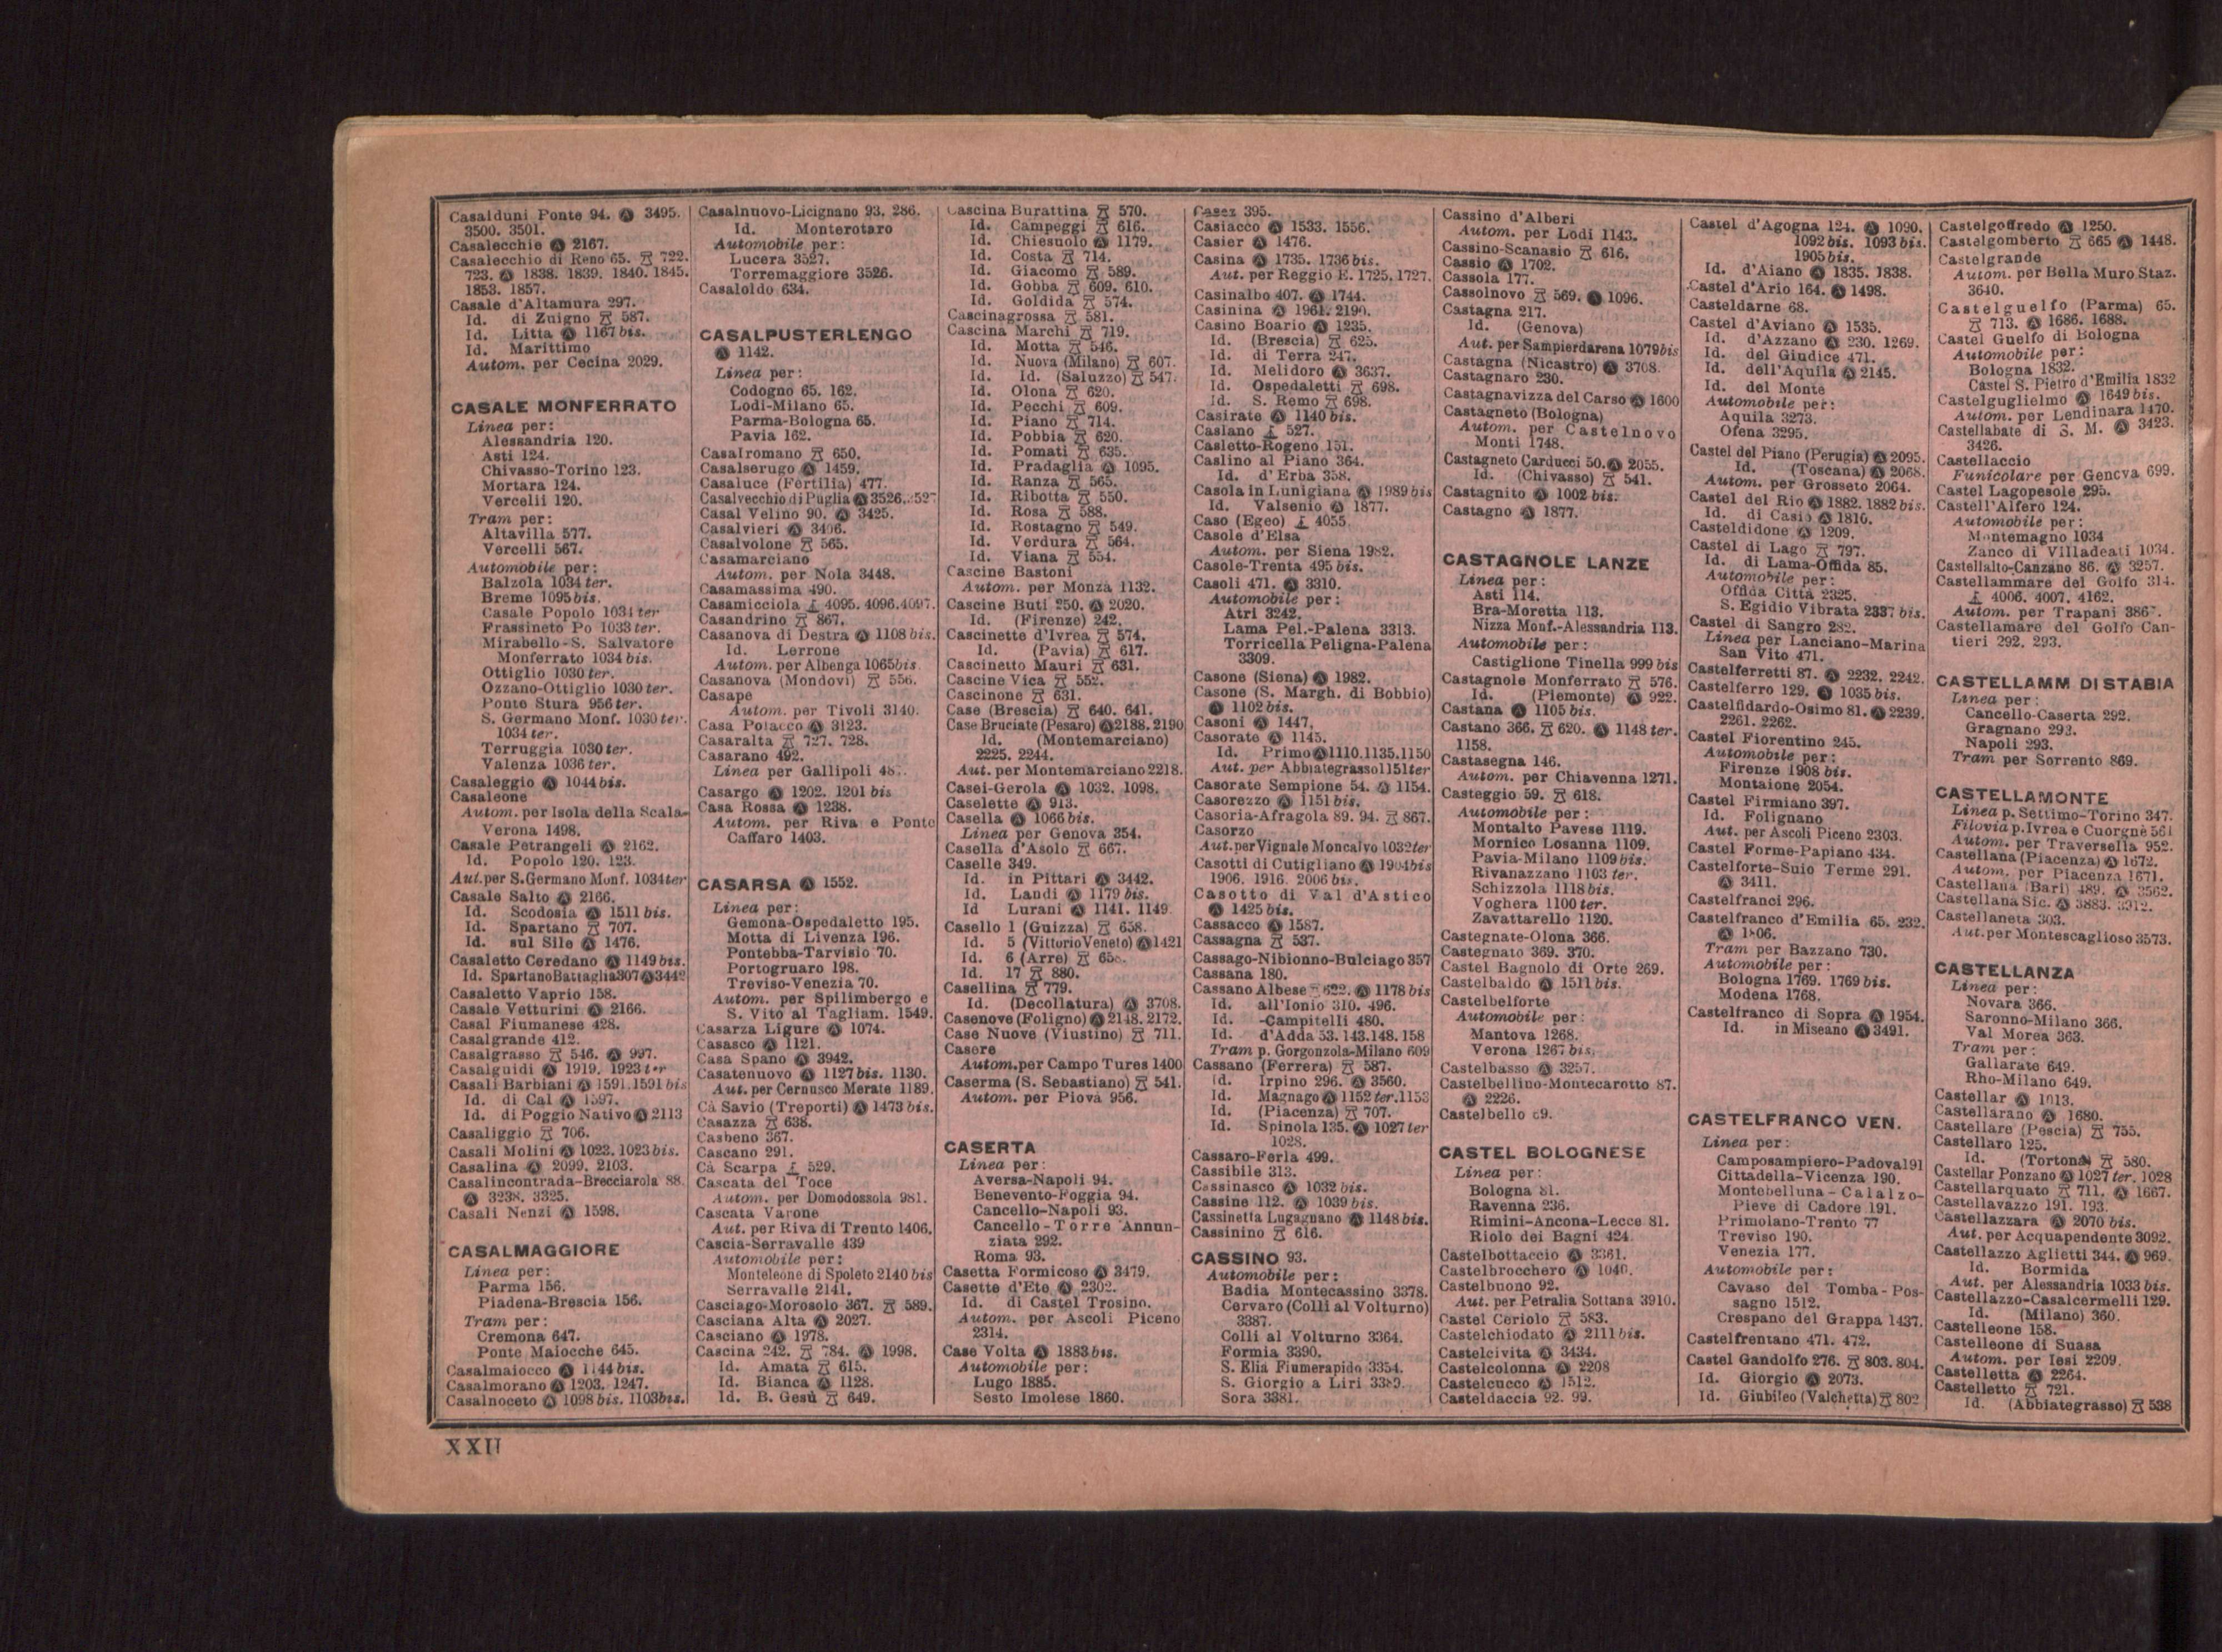 Casalduni Ponte 94. 3495.
3500. 3501.
Casalecchie 2167.
Casalecchio di Reno 65. 722.
723. 1838. 1839. 1840. 1845.
1853. 1857.
Casale d'Altamura 297.
Id. di Zuigno 587.
Id. Litta 1167 bis.
Id. Marittimo
Autom. per Cecina 2029.
CASALE MONFERRATO
Linea per:
Alessandria 120.
Asti 124.
Chivasso-Torino 123.
Mortara 124.
Vercelli 120.
Tram per:
Altavilla 577.
Vercelli 567.
Automobile per:
Balzola 1034 ter.
Breme 1095 bis.
Casale Popolo 1034 ter
Frassineto Po 1033 ter.
Mirabello-S. Salvatore
Monferrato 1034 bis.
Ottiglio 1030 ter.
Ozzano-Ottiglio 1030 ter.
Ponte Stura 956 ter.
S. Germano Monf. 1030 ter.
1034 ter.
Terruggia 1030 ter.
Valenza 1036 ter.
Casaleggio 1044 bis.
Casaleone
Autom. per Isola della Scala-
Verona 1498.
Casale Petrangeli 2162.
Id. Popolo 120. 123.
Aut. per S. Germano Monf. 1034 ter
Casale Salto 2166.
Id. Scodosia 1511 bis.
Id. Spartano 707.
Id. sul Sile 1476.
Casaletto Ceredano 1149 bis.
Id. Spartano Battaglia 307 3442
Casaletto Vaprio 158.
Casale Vetturini 2166.
Casal Fiumanese 428.
Casalgrande 412.
Casalgrasso 546. 997.
Casalguidi 1919. 1923 ter
Casali Barbiani 1591. 1591 bis
Id. di Cal 1597.
Id. di Poggio Nativo 2113
Casaliggio 706.
Casali Molini 1023. 1023 bis.
Casalina 2099. 2103.
Casalincontrada-Brecciarola 88.
3238. 3325.
Casali Nenzi 1598.
CASALMAGGIORE
Linea per:
Parma 156.
Piadena-Brescia 156.
Tram per:
Cremona 647.
Ponte Maiocche 645.
Casalmaiocco 1144 bis.
Casalmorano 1203. 1247.
Casalnoceto 1098 bis. 1103 bis.
Casalnuovo-Licignano 93. 286.
Id. Monterotaro
Automobile per:
Lucera 3527.
Torremaggiore 3526.
Casaloldo 634.
CASALPUSTERLENGO
1142.
Linea per:
Codogno 65. 162.
Lodi-Milano 65.
Parma-Bologna 65.
Pavia 162.
Casalromano 650.
Casalserugo 1459.
Casaluce (Fertilia) 477.
Casalvecchio di Puglia 3526.
Casal Velino 90. 3425.
Casalvieri 3406.
Casalvolone 565.
Casamarciano
Autom. per Nola 3448.
Casamassima 490.
Casamicciola 4095. 4096. 4097.
Casandrino 867.
Casanova di Destra 1108 bis.
Id. Lerrone
Autom. per Albenga 1065 bis.
Casanova (Mondovì) 556.
Casape
Autom. per Tivoli 3140.
Casa Polacco 3123.
Casaralta 727. 728.
Casarano 492.
Linea per Gallipoli
Casargo 1202. 1201 bis
Casa Rossa 1238.
Autom. per Riva e Ponte
Caffaro 1403.
CASARSA 1552.
Linea per:
Gemona-Ospedaletto 195.
Motta di Livenza 196.
Pontebba-Tarvisio 70.
Portogruaro 198.
Treviso-Venezia 70.
Autom. per Spilimbergo e
S. Vito al Tagliam. 1549.
Casarza Ligure 1074.
Casasco 1121.
Casa Spano 3942.
Casatenuovo 1127 bis. 1130.
Aut. per Cernusco Merate 1189.
Cà Savio (Treporti) 1473 bis.
Casazza 638.
Casbeno 367.
Cascano 291.
Cà Scarpa 529.
Cascata del Toce
Autom. per Domodossola 981.
Cascata Varone
Aut. per Riva di Trento 1406.
Cascia-Serravalle 439
Automobile per:
Monteleone di Spoleto 2140 bis
Serravalle 2141.
Casciago-Morosolo 367. 589.
Casciana Alta 2027.
Casciano 1978.
Cascina 242. 784. 1998.
Id. Amata 615.
Id. Bianca 1128.
Id. B. Gesù 649.
Cascina Burattina 570.
Id. Campeggi 616.
Id. Chiesuolo 1179.
Id. Costa 714.
Id. Giacomo 589.
Id. Gobba 609. 610.
Id. Goldida 574.
Cascinagrossa 581.
Cascina Marchi 719.
Id. Motta 546.
Id. Nuova (Milano) 607.
Id. Id. (Saluzzo) 547.
Id. Olona 620.
Id. Pecchi 609.
Id. Piano 714.
Id. Pobbia 620.
Id. Pomati 635.
Id. Pradaglia 1095.
Id. Ranza 565.
Id. Ribotta 550.
Id. Rosa 588.
Id. Rostagno 549.
Id. Verdura 564.
Id. Viana 554.
Cascine Bastoni
Autom. per Monza 1132.
Cascine Buti 250. 2020.
Id. (Firenze) 242.
Cascinette d'Ivrea 574.
Id. (Pavia) 617.
Cascinetto Mauri 631.
Cascine Vica 552.
Cascinone 631.
Case (Brescia) 640. 641.
Case Bruciate (Pesaro) 2188. 2190
Id. (Montemarciano)
2225. 2244.
Aut. per Montemarciano 2218.
Casei-Gerola 1032. 1098.
Caselette 913.
Casella 1066 bis.
Linea per Genova 354.
Casella d'Asolo 667.
Caselle 349.
Id. in Pittari 3442.
Id. Landi 1179 bis.
Id Lurani 1141. 1149.
Casello 1 (Guizza) 658.
Id. 5 (Vittorio Veneto) 1421
Id. 6 (Arre)
Id. 17 880.
Casellina 779.
Id. (Decollatura) 3708.
Casenove (Foligno) 2148. 2172.
Case Nuove (Viustino) 711.
Casere
Autom. per Campo Tures 1400
Caserma (S. Sebastiano) 541.
Autom. per Piovà 956.
CASERTA
Linea per:
Aversa-Napoli 94.
Benevento-Foggia 94.
Cancello-Napoli 93.
Cancello-Torre Annun-
ziata 292.
Roma 93.
Casetta Formicoso 3479.
Casette d'Ete 2302.
Id. di Castel Trosino.
Autom. per Ascoli Piceno
2314.
Case Volta 1883 bis.
Automobile per:
Lugo 1885.
Sesto Imolese 1860.
Casez 395.
Casiacco 1533. 1556.
Casier 1476.
Casina 1735. 1736 bis.
Aut. per Reggio E. 1725. 1727.
Casinalbo 407. 1744.
Casinina 1961. 2190.
Casino Boario 1235.
Id. (Brescia) 625.
Id. di Terra 247.
Id. Melidoro 3637.
Id. Ospedaletti 698.
Id. S. Remo 698.
Casirate 1140 bis.
Caslano 527.
Casletto-Rogeno 151.
Caslino al Piano 364.
Id. d'Erba 358.
Casola in Lunigiana 1989 bis
Id. Valsenio 1877.
Caso (Egeo) 4055.
Casole d'Elsa
Autom. per Siena 1982.
Casole-Trenta 495 bis.
Casoli 471. 3310.
Automobile per:
Atri 3242.
Lama Pel.-Palena 3313.
Torricella Peligna-Palena
3309.
Casone (Siena) 1982.
Casone (S. Margh. di Bobbio)
1102 bis.
Casoni 1447.
Casorate 1145.
Id. Primo 1110. 1135. 1150
Aut. per Abbiategrasso 1151 ter
Casorate Sempione 54. 1154.
Casorezzo 1151 bis.
Casoria-Afragola 89. 94. 867.
Casorzo
Aut. per Vignale Moncalvo 1032 ter
Casotti di Cutigliano 1904 bis
1906. 1916. 2006 bis.
Casotto di Val d'Astico
1425 bis.
Cassacco 1587.
Cassagna 537.
Cassago-Nibionno-Bulciago 357
Cassana 180.
Cassano Albese 622. 1178 bis
Id. all'Ionio 310. 496.
Id. -Campitelli 480.
Id. d'Adda 53. 143. 148. 158
Tram p. Gorgonzola-Milano 609
Cassano (Ferrera) 587.
Id. Irpino 296. 3560.
Id. Magnago 1152 ter. 1153
Id. (Piacenza) 707.
Id. Spinola 135. 1027 ter
1028.
Cassaro-Ferla 499.
Cassibile 313.
Cassinasco 1032 bis.
Cassine 112. 1039 bis.
Cassinetta Lugagnano 1148 bis.
Cassinino 616.
CASSINO 93.
Automobile per:
Badia Montecassino 3378.
Cervaro (Colli al Volturno)
3387.
Colli al Volturno 3364.
Formia 3390.
S. Elia Fiumerapido 3354.
S. Giorgio a Liri
Sora 3381.
Cassino d'Alberi
Autom. per Lodi 1143.
Cassino-Scanasio 616.
Cassio 1702.
Cassola 177.
Cassolnovo 569. 1096.
Castagna 217.
Id. (Genova)
Aut. per Sampierdarena 1079 bis
Castagna (Nicastro) 3708.
Castagnaro 230.
Castagnavizza del Carso 1600
Castagneto (Bologna)
Autom. per Castelnovo
Monti 1748.
Castagneto Carducci 50. 2055.
Id. (Chivasso) 541.
Castagnito 1002 bis.
Castagno 1877.
CASTAGNOLE LANZE
Linea per:
Asti 114.
Bra-Moretta 113.
Nizza Monf.-Alessandria 113.
Automobile per:
Castiglione Tinella 999 bis
Castagnole Monferrato 576.
Id. (Piemonte) 922.
Castana 1105 bis.
Castano 366. 620. 1148 ter.
1158.
Castasegna 146.
Autom. per Chiavenna 1271.
Casteggio 59. 618.
Automobile per:
Montalto Pavese 1119.
Mornico Losanna 1109.
Pavia-Milano 1109 bis.
Rivanazzano 1103 ter.
Schizzola 1118 bis.
Voghera 1100 ter.
Zavattarello 1120.
Castegnate-Olona 366.
Castegnato 369. 370.
Castel Bagnolo di Orte 269.
Castelbaldo 1511 bis.
Castelbelforte
Automobile per:
Mantova 1268.
Verona 1267 bis.
Castelbasso 3257.
Castelbellino-Montecarotto 87.
2226.
Castelbello 69.
CASTEL BOLOGNESE
Linea per:
Bologna 81.
Ravenna 236.
Rimini-Ancona-Lecce 81.
Riolo dei Bagni 424.
Castelbottaccio 3361.
Castelbrocchero 1040.
Castelbuono 92.
Aut. per Petralia Sottana 3910.
Castel Ceriolo 583.
Castelchiodato 2111 bis.
Castelcivita 3434.
Castelcolonna 2208
Castelcucco 1512.
Casteldaccia 92. 99.
Castel d'Agogna 124. 1090.
1092 bis. 1093 bis.
1905 bis.
Id. d'Aiano 1835. 1838.
Castel d'Ario 164. 1498.
Casteldarne 68.
Castel d'Aviano 1535.
Id. d'Azzano 230. 1269.
Id. del Giudice 471.
Id. dell'Aquila 2145.
Id. del Monte
Automobile per:
Aquila 3273.
Ofena 3295.
Castel del Piano (Perugia) 2095.
Id. (Toscana) 2068.
Autom. per Grosseto 2064.
Castel del Rio 1882. 1882 bis.
Id. di Casio 1816.
Casteldidone 1209.
Castel di Lago 797.
Id. di Lama-Offida 85.
Automobile per:
Offida Città 2325.
S. Egidio Vibrata 2337 bis.
Castel di Sangro 282.
Linea per Lanciano-Marina
San Vito 471.
Castelferretti 87. 2232. 2242.
Castelferro 129. 1035 bis.
Castelfidardo-Osimo 81. 2239.
2261. 2262.
Castel Fiorentino 245.
Automobile per:
Firenze 1908 bis.
Montaione 2054.
Castel Firmiano 397.
Id. Folignano
Aut. per Ascoli Piceno 2303.
Castel Forme-Papiano 434.
Castelforte-Suio Terme 291.
3411.
Castelfranci 296.
Castelfranco d'Emilia 65. 232.
1806.
Tram per Bazzano 730.
Automobile per:
Bologna 1769. 1769 bis.
Modena 1768.
Castelfranco di Sopra 1954.
Id. in Miscano 3491.
CASTELFRANCO VEN.
Linea per:
Camposampiero-Padova 191
Cittadella-Vicenza 190.
Montebelluna-Calalzo-
Pieve di Cadore 191.
Primolano-Trento 77
Treviso 190.
Venezia 177.
Automobile per:
Cavaso del Tomba-Pos-
sagno 1512.
Crespano del Grappa 1437.
Castelfrentano 471. 472.
Castel Gandolfo 276. 803. 804.
Id. Giorgio 2073.
Id. Giubileo (Valchetta) 802
Castelgoffredo 1250.
Castelgomberto 665 1448.
Castelgrande
Autom. per Bella Muro Staz.
3640.
Castelguelfo (Parma) 65.
713. 1686. 1688.
Castel Guelfo di Bologna
Automobile per:
Bologna 1832.
Castel S. Pietro d'Emilia 1832
Castelguglielmo 1649 bis.
Autom. per Lendinara 1470.
Castellabate di S. M. 3423.
3426.
Castellaccio
Funicolare per Genova 699.
Castel Lagopesole 295.
Castell'Alfero 124.
Automobile per:
Montemagno 1034
Zanco di Villadeati 1034.
Castellalto-Canzano 86. 3257.
Castellammare del Golfo 314.
4006. 4007. 4162.
Autom. per Trapani
Castellamare del Golfo Can-
tieri 292. 293.
CASTELLAMM DI STABIA
Linea per:
Cancello-Caserta 292.
Gragnano 293.
Napoli 293.
Tram per Sorrento 869.
CASTELLAMONTE
Linea p. Settimo-Torino 347.
Filovia p. Ivrea e Cuorgnè 561
Autom. per Traversella 952.
Castellana (Piacenza) 1672.
Autom. per Piacenza 1671.
Castellana (Bari) 489. 3562.
Castellana Sic. 3883. 3912.
Castellaneta 303.
Aut. per Montescaglioso 3573.
CASTELLANZA
Linea per:
Novara 366.
Saronno-Milano 366.
Val Morea 363.
Tram per:
Gallarate 649.
Rho-Milano 649.
Castellar 1013.
Castellarano 1680.
Castellare (Pescia) 755.
Castellaro 125.
Id. (Tortona) 580.
Castellar Ponzano 1027 ter. 1028
Castellarquato 711. 1667.
Castellavazzo 191. 193.
Castellazzara 2070 bis.
Aut. per Acquapendente 3092.
Castellazzo Aglietti 344. 969.
Id. Bormida
Aut. per Alessandria 1033 bis.
Castellazzo-Casalcermelli 129.
Id. (Milano) 360.
Castelleone 158.
Castelleone di Suasa
Autom. per Iesi 2209.
Castelletta 2264.
Castelletto 721.
Id. (Abbiategrasso) 538
XXII